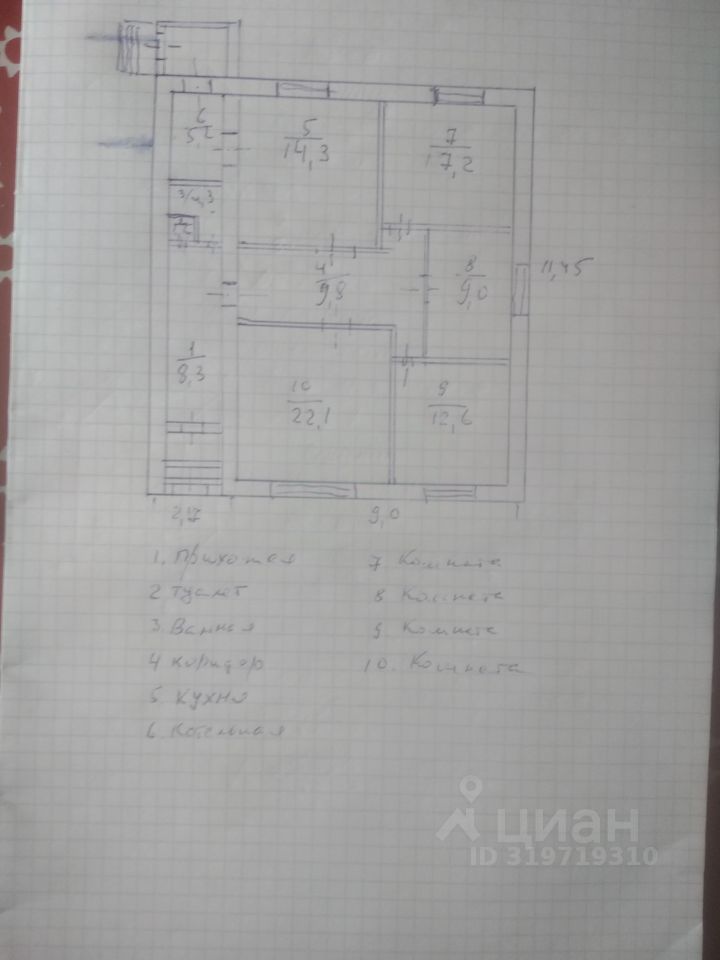 6
5
14,3
7
17,2
4
9,8
8
9,0
11,45
1
8,3
10
22,1
9
12,6
2,17
9,0
1. Прихожая
2 туалет
3. Ванная
4 коридор
5 кухня
6. Котельная
7 Комната
8 Комната
9 Комната
10. Комната
циан
ID 319719310